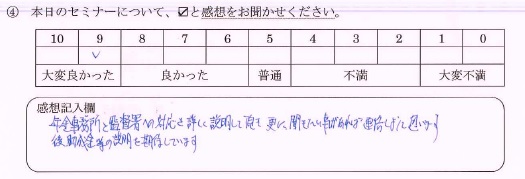 ④ 本日のセミナーについて、☑と感想をお聞かせください。
10 9 8 7 6 5 4 3 2 1 0
✓
大変良かった 良かった 普通 不満 大変不満
感想記入欄
年金事務所と監督署への対応を詳しく説明して頂き 更に、聞きたい事があれば連絡しようと思います
後、助成金等の説明を期待しています